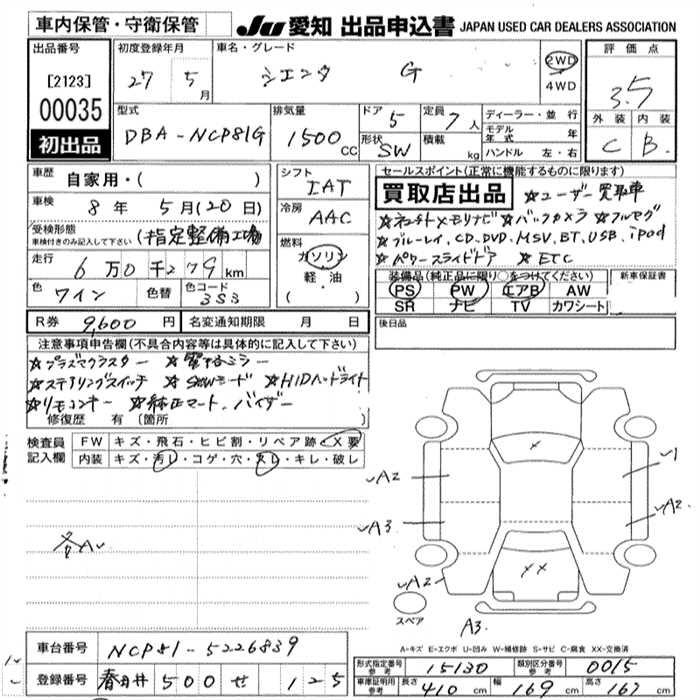 車内保管・守衛保管
JU 愛知 出品申込書 JAPAN USED CAR DEALERS ASSOCIATION
出品番号 [2123] 00035 初出品
初度登録年月 27 5月
車名・グレード シエンタ G
2WD 4WD
評価点 3.5
外装 C 内装 B
型式 DBA-NCP81G
排気量 1500 CC
ドア 5 形状 SW
定員 7人 積載 kg
ディーラー・並行
モデル年式 年
ハンドル 左・右
車歴 自家用・( )
車検 8年 5月(20日)
受検形態 車検付きのみ記入して下さい (指定整備工場)
走行 6万0千279km
色 ワイン 色替 色コード 3S3
シフト IAT
冷房 AAC
燃料 ガソリン 軽・油 ( )
セールスポイント(正常に機能するものに限ります)
買取店出品 ☆ユーザー買取車
☆純正メモリナビ ☆バックカメラ ☆フルセグ
☆ブルーレイ,CD,DVD,MSV,BT,USB,iPod
☆パワースライドドア ☆ETC
装備品(純正品に限り○をつけてください) 新車保証書
PS PW エアB AW
SR ナビ TV カワシート
後日品
R券 9,600円 名変通知期限 月 日
注意事項申告欄(不具合内容等は具体的に記入して下さい)
☆プラズマクラスター ☆電格ミラー
☆ステアリングスイッチ ☆3列シート ☆HIDヘッドライト
☆リモコンキー ☆純正マット、バイザー
修復歴 有 〔箇所
検査員記入欄 FW キズ・飛石・ヒビ割・リペア跡・X要
内装 キズ・汚レ・コゲ・穴・スレ・キレ・破レ
各A
A2 1
A3 A2
A2
A3
スペア
A=キズ E=エクボ U=凹み W=補修跡 S=サビ C=腐食 XX=交換済
車台番号 NCP81-5226839
登録番号 春日井 500 せ 125
形式指定番号 参考 15130 類別区分番号 参考 0015
車庫証明用 参考 長さ 410cm 幅 169cm 高さ 167cm